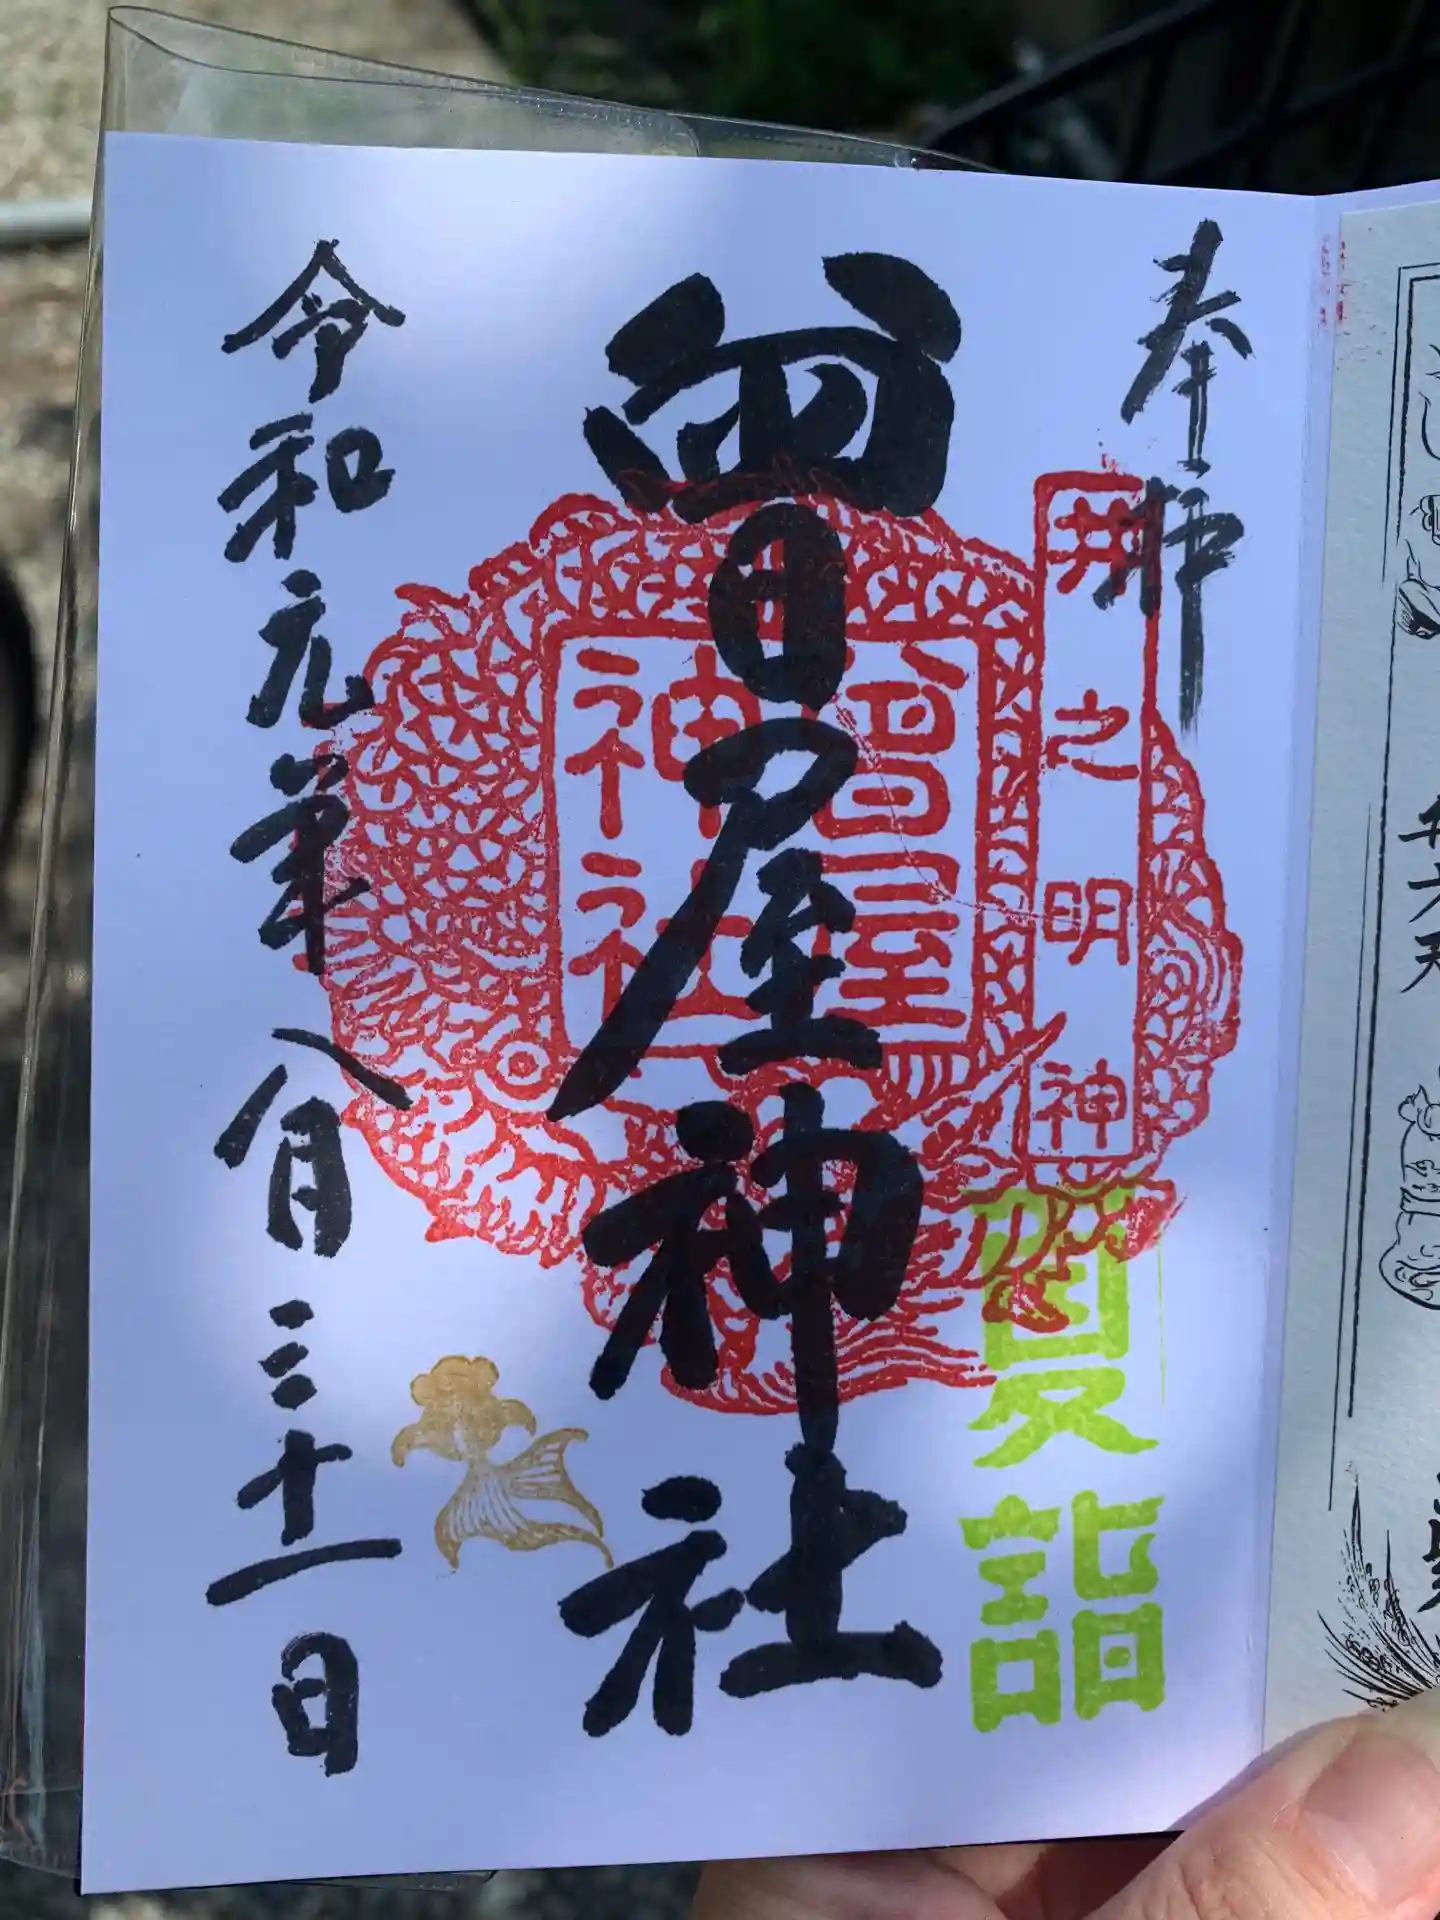 奉拝
井之明神
夏詣
曾屋神社
曽屋
神社
令和元年八月三十一日